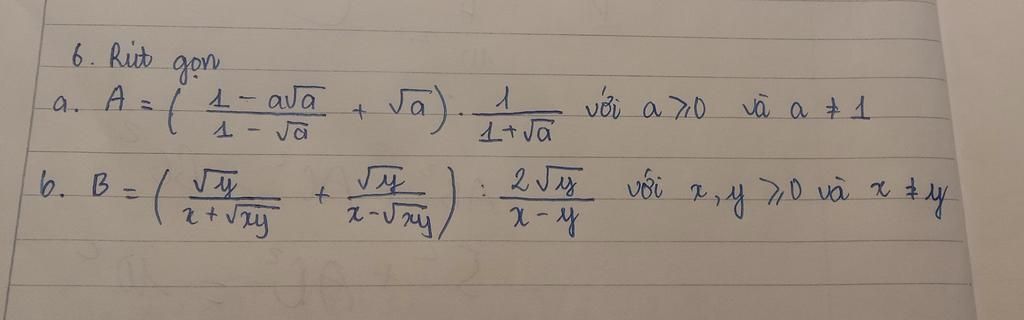 6. Rút gọn
a. A = ( \frac{1 - a\sqrt{a}}{1 - \sqrt{a}} + \sqrt{a} ) . \frac{1}{1 + \sqrt{a}} với a ⩾ 0 và a ≠ 1
b. B = ( \frac{\sqrt{y}}{x + \sqrt{xy}} + \frac{\sqrt{y}}{x - \sqrt{xy}} ) : \frac{2\sqrt{y}}{x - y} với x, y ⩾ 0 và x ≠ y